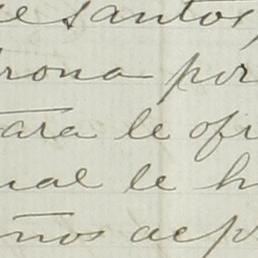 santos,
rona por
ara le ofr
ual le h
ños acep